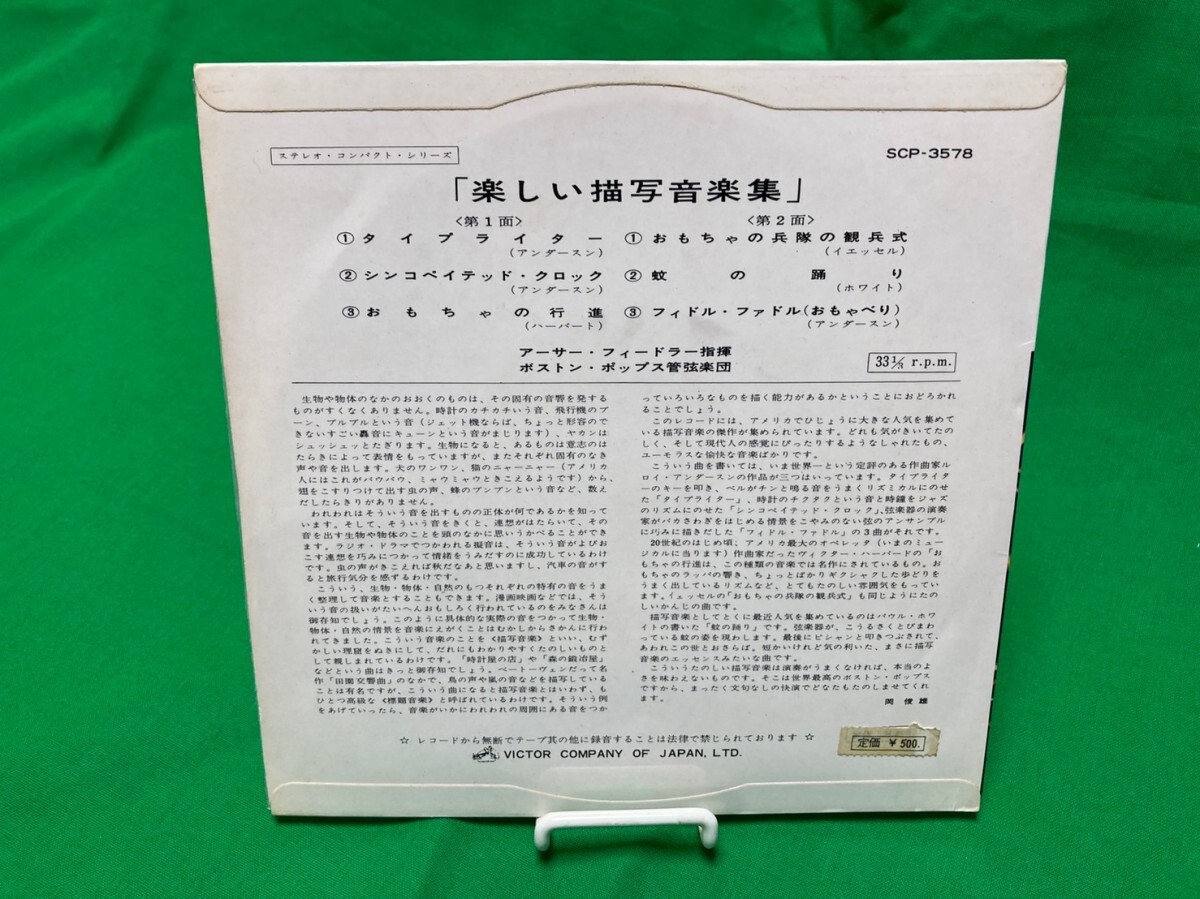 ステレオ・コンパクト・シリーズ
SCP-3578
「楽しい描写音楽集」
〈第1面〉
① タイプライター
(アンダースン)
② シンコペイテッド・クロック
(アンダースン)
③ おもちゃの行進
(ハーバート)
〈第2面〉
① おもちゃの兵隊の観兵式
(イエッセル)
② 蚊の踊り
(ホワイト)
③ フィドル・ファドル(おもゃべり)
(アンダースン)
アーサー・フィードラー指揮
ボストン・ポップス管弦楽団
33 1/3 r.p.m.
生物や物体のなかのおおくのものは、その固有の音響を発する
ものがすくなくありません。時計のカチカチいう音、飛行機のブ
ーン、ブルブルという音(ジェット機ならば、ちょっと形容ので
できないすごい轟音にキューンという音がまじります)、ヤカンは
シュッシュッとたぎります。生物になると、あるものは意志のは
たらきによって表情をもっていますが、またそれぞれ固有のなき
声や音を出します。犬のワンワン、猫のニャーニャー(アメリカ
人にはこれがバウバウ、ミャウミャウときこえるようです)から、
翅をこすりつけて出す虫の声、蜂のブンブンという音など、数え
だしたらきりがありません。
われわれはそういう音を出すものの正体が何であるかを知って
います。そして、そういう音をきくと、連想がはたらいて、その
音を出す生物や物体のことを頭のなかに思いうかべることができ
ます。ラジオ・ドラマでつかわれる擬音は、そういう音がよびお
こす連想を巧みにつかって情緒をうみだすのに成功しているわけ
です。虫の声がきこえれば秋だなあと思いますし、汽車の音がす
ると旅行気分を感ずるわけです。
こういう、生物・物体・自然のもつそれぞれの特有の音をうま
く整理して音楽とすることもできます。漫画映画などでは、そう
いう音の扱いがたいへんおもしろく行われているのをみなさんは
御存知でしょう。このように具体的な実際の音をつかって生物・
物体・自然の情景を音楽にえがくことはむかしからさかんに行わ
れてきました。こういう音楽のことを《描写音楽》といい、むず
かしい理窟をぬきにして、だれにもわかりやすくたのしいものと
して親しまれているわけです。「時計屋の店」や「森の鍛冶屋」
などという曲はきっと御存知でしょう。ベートーヴェンだって名
作「田園交響曲」のなかで、鳥の声や嵐の音などを描写している
ことは有名ですが、こういう曲になると描写音楽とはいわず、も
ひとつ高級な《標題音楽》と呼ばれているわけです。そういう例
をあげていったら、音楽がいかにわれわれの周囲にある音をつか
っていろいろなものを描く能力があるかということにおどろかれ
ることでしょう。
このレコードには、アメリカでひじょうに大きな人気を集めて
いる描写音楽の傑作が集められています。どれも気がきいてたの
しく、そして現代人の感覚にぴったりするようなしゃれたもの、
ユーモラスな愉快な音楽ばかりです。
こういう曲を書いては、いま世界一という定評のある作曲家ル
ロイ・アンダースンの作品が三つはいっています。タイプライタ
ーのキーを叩き、ベルがチンと鳴る音をうまくリズミカルにのせ
た「タイプライター」、時計のチクタクという音と時鐘をジャズ
のリズムにのせた「シンコペイテッド・クロック」、弦楽器の演奏
家がバカさわぎをはじめる情景をこやみのない弦のアンサンブル
に巧みに描きだした「フィドル・ファドル」の3曲がそれです。
20世紀のはじめ頃、アメリカ最大のオペレッタ(いまのミュー
ジカルに当ります)作曲家だったヴィクター・ハーバードの「お
もちゃの行進は、この種類の音楽では名作にされているもの。お
もちゃのラッパの響き、ちょっとばかりギクシャクした歩どりを
うまく出しているリズムなど、とてもたのしい雰囲気をもってい
ます。イェッセルの「おもちゃの兵隊の観兵式」も同じようにたの
しいかんじの曲です。
描写音楽としてとくに最近人気を集めているのはパウル・ホワ
イトの書いた「蚊の踊り」です。弦楽器が、こうるさくとびまわ
っている蚊の姿を現わします。最後にピシャンと叩きつぶされて、
あわれこの世とおさらば。短かいけれど気の利いた、まさに描写
音楽のエッセンスみたいな曲です。
こういうたのしい描写音楽は演奏がうまくなければ、本当のよ
さを味わえないものです。そこは世界最高のボストン・ポップス
ですから、まったく文句なしの快演でどなたもたのしませてくれ
ます。
岡 俊雄
☆ レコードから無断でテープ其の他に録音することは法律で禁じられております ☆
VICTOR COMPANY OF JAPAN, LTD.
定価 ¥500.